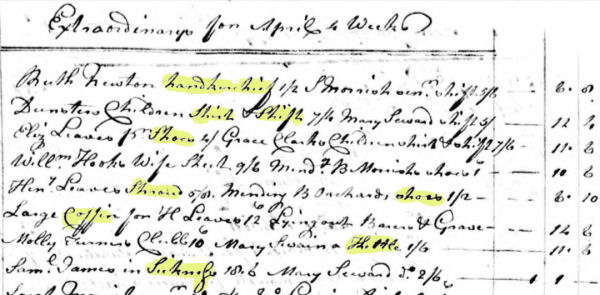 Extraordinarys for April 4 Weeks
Ruth Newton handkerchief 1/2 S Morrish senr shift 5/6 — 6 . 8
Dunsters Children Shirt & Shifts 7/4 Mary Seward shift 5/ — 12 . 4
Eliz Leaves pr Shoes 4/ Grace Clarks Children shirt & shift 7/6 — 11 . 6
Willm Hooks Wife Shift 9/6 Mendg B Morrish shoes 1 — 10 6
Henr Leaves Shroud 5/8 Mending B Orchards shoes 1/2 — 6 . 10
Large Coffin for H Leaves 12 Lying out Bearers & Grave — 14 6
Molly Turners Child 10 Mary Swain a Kettle 1/6 — 11 . 6
Saml James in Sickness 18 . 6 Mary Seward Do 2/6 — 1 . 1 —